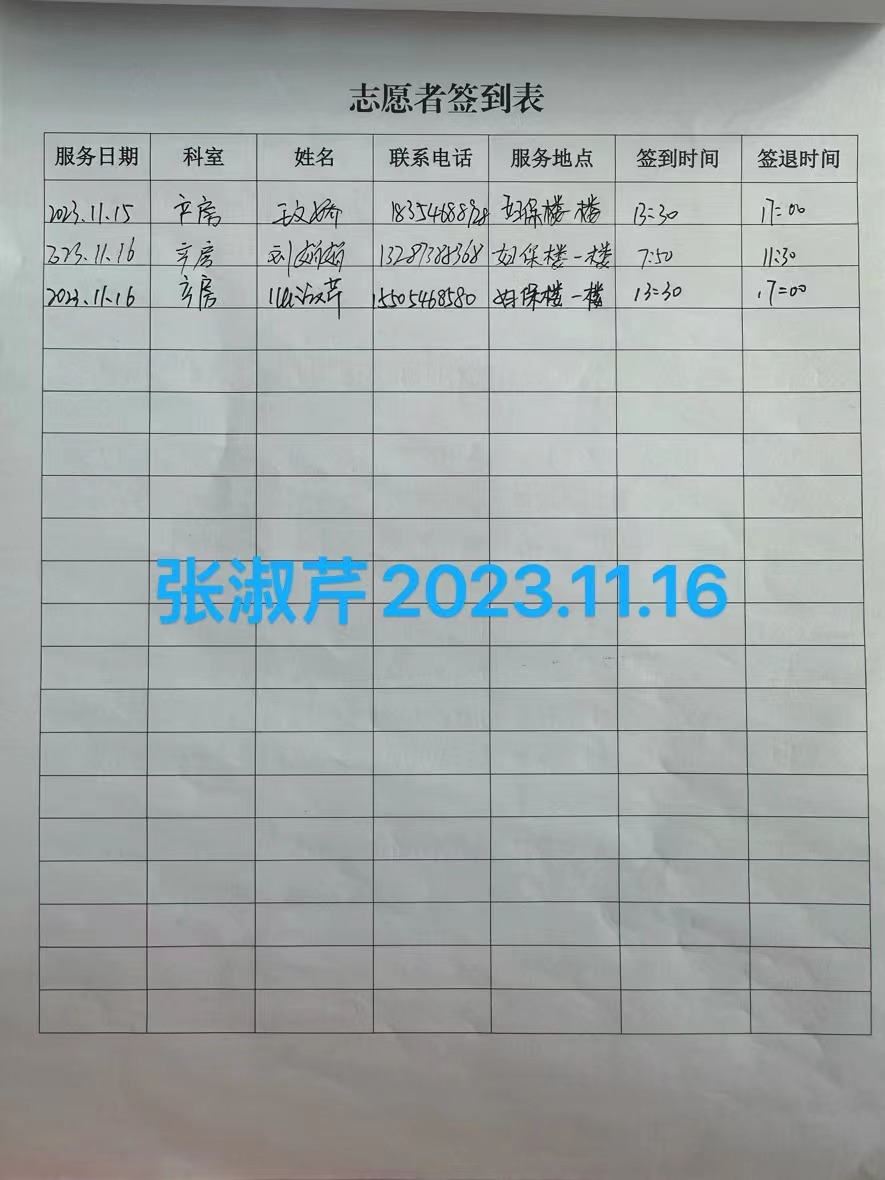 志愿者签到表
服务日期 科室 姓名 联系电话 服务地点 签到时间 签退时间
2023.11.15 产房 妇保楼一楼 13:30 17:00
2023.11.16 产房 刘娟娟 13287388368 妇保楼一楼 7:50 11:30
2023.11.16 产房 张淑芹 15505468580 妇保楼一楼 13:30 17:00
张淑芹2023.11.16